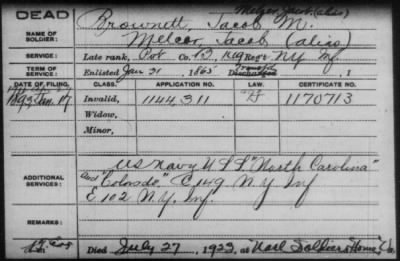 DEAD
Melzer, Jacob (alias)
NAME OF SOLDIER: Brownett, Jacob M.
Melcer, Jacob (alias)
SERVICE: Late rank, Pvt Co. 13, Reg't N.Y. Inf
TERM OF SERVICE: Enlisted Jan 31, 1865 Discharged , 1
DATE OF FILING. CLASS. APPLICATION NO. LAW. CERTIFICATE NO.
1893 Jan. 17 Invalid, 1144,311 1170713
Widow,
Minor,
ADDITIONAL SERVICES: US Navy U.S.S. "North Carolina"
and "Colorado," C 149 N.Y. Inf
E 102 N.Y. Inf.
REMARKS:
Died July 27, 1923, at Natl Soldiers Home, Va